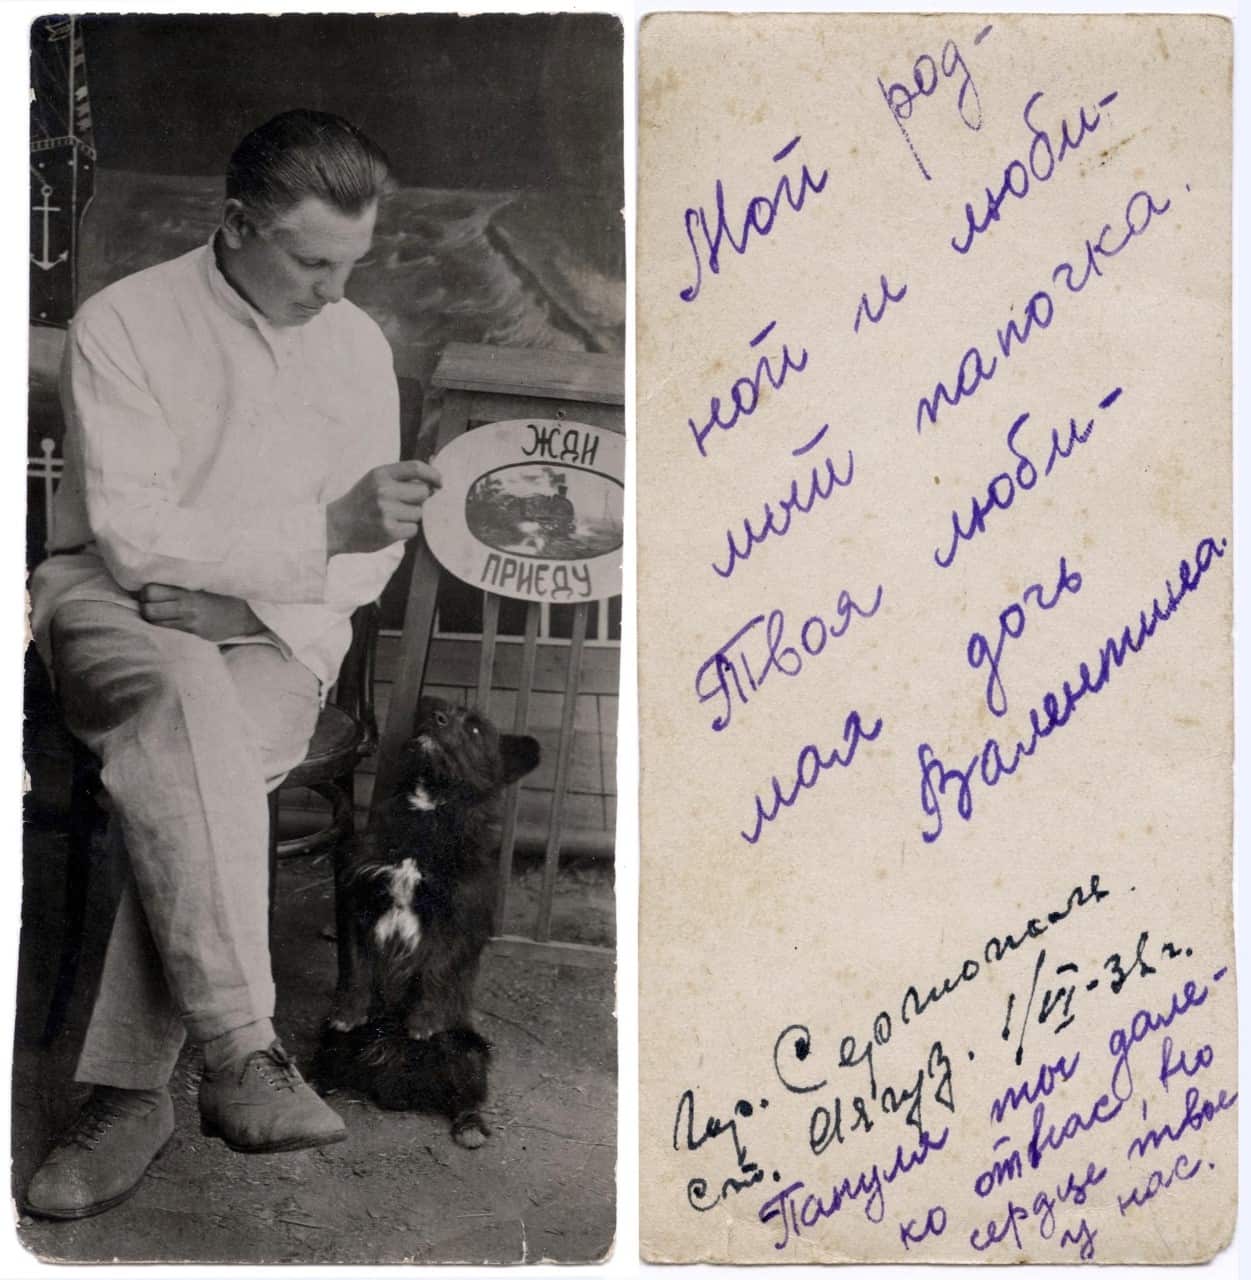 ЖДИ
ПРИЕДУ
Мой род-
ной и люби-
мый папочка.
Твоя люби-
мая дочь
Валентина.
Гор. Сергиополь.
ст. Аягуз. 1/VI-32 г.
Папуля ты дале-
ко от нас, но
сердце твое
у нас.